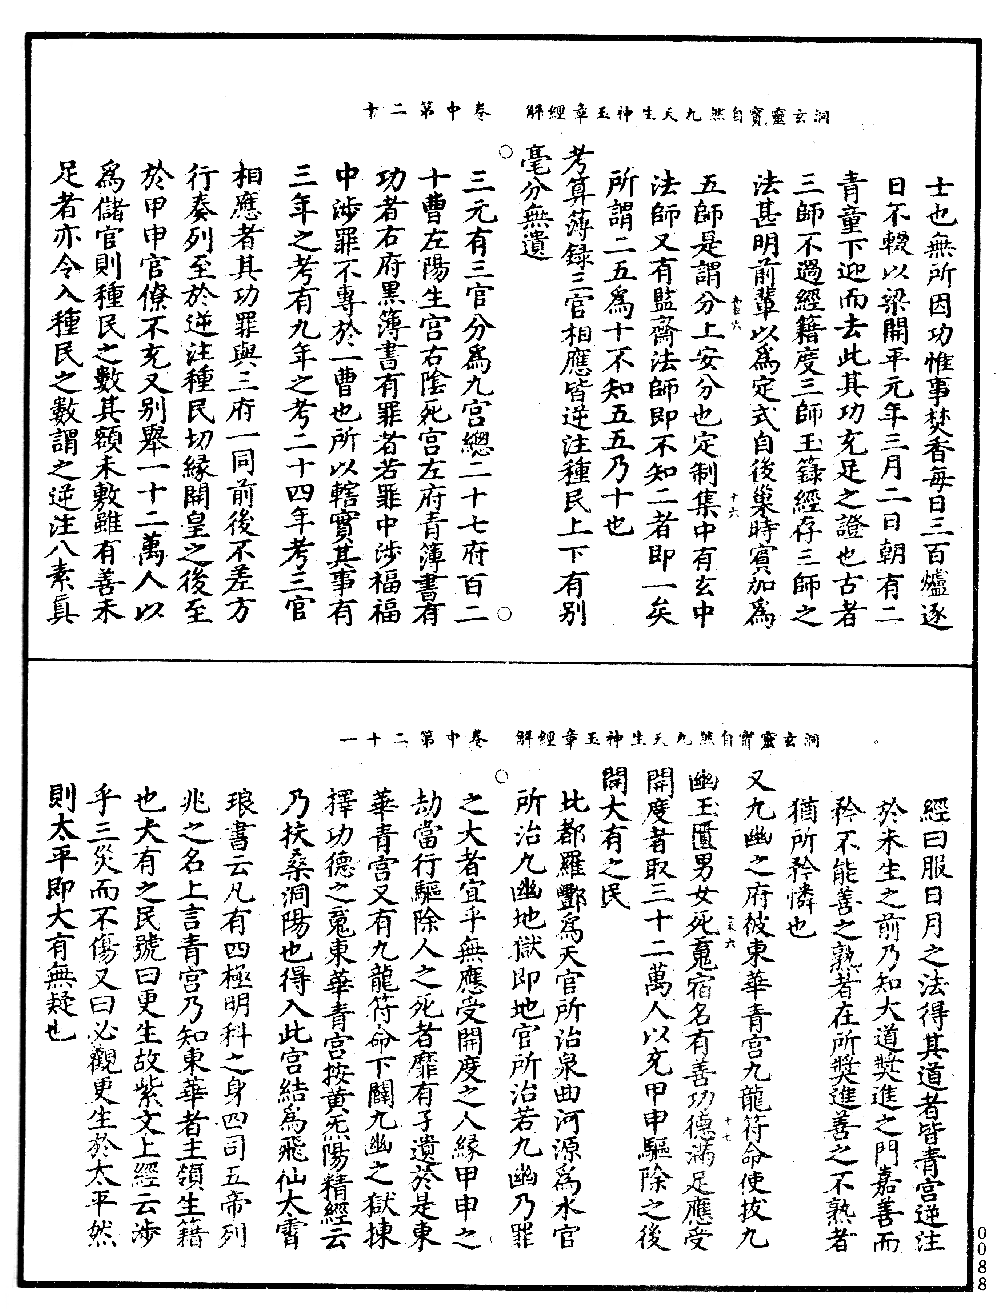 洞玄靈寶自然九天生神玉章經解　卷中第二十
士也無所因功惟事焚香每日三百爐逐
日不輟以梁開平元年三月二日朝有二
青童下迎而去此其功充足之證也古者
三師不過經籍度三師玉籙經存三師之
法甚明前輩以為定式自後巢時賓加為
五師是謂分上安分也定制集中有玄中
法師又有監齋法師即不知二者即一矣
所謂二五為十不知五五乃十也
考算簿録三官相應皆逆注種民上下有別
毫分無遺
三元有三官分為九宮總二十七府百二
十曹左陽生宮右陰死宮左府青簿書有
功者右府黑簿書有罪者若罪中涉福福
中涉罪不專於一曹也所以轄實其事有
三年之考有九年之考二十四年考三官
相應者其功罪與三府一同前後不差方
行奏列至於逆注種民切緣開皇之後至
於甲申官僚不充又別舉一十二萬人以
為儲官則種民之數其額未敷雖有善未
足者亦令入種民之數謂之逆注八素真
洞玄靈寶自然九天生神玉章經解　卷中第二十一
經曰服日月之法得其道者皆青宮逆注
於未生之前乃知大道獎進之門嘉善而
矜不能善之熟者在所獎進善之不熟者
猶所矜憐也
又九幽之府彼東華青宮九龍符命使拔九
幽玉匱男女死䰟宿名有善功德滿足應受
開度者取三十二萬人以充甲申驅除之後
開大有之民
比都羅酆為天官所治泉曲河源為水官
所治九幽地獄即地官所治若九幽乃罪
之大者宜乎無應受開度之人緣甲申之
劫當行驅除人之死者靡有孑遺於是東
華青宮又有九龍符命下闢九幽之獄揀
擇功德之䰟東華青宮按黃炁陽精經云
乃扶桑洞陽也得入此宮結為飛仙太霄
琅書云凡有四極明科之身四司五帝列
兆之名上言青宮乃知東華者主領生籍
也大有之民號曰更生故紫文上經云涉
乎三災而不傷又曰必觀更生於太平然
則太平即大有無疑也
0088